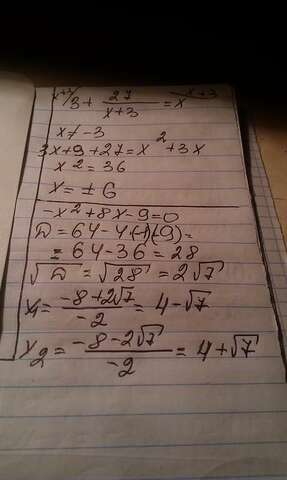 x+3/3 + 27/(x+3) = x x+3
x ≠ -3
3x+9+27=x²+3x
x²=36
x=±6
-x²+8x-9=0
D=64-4(-1)(-9)=
=64-36=28
√D=√28=2√7
x₁=(-8+2√7)/-2=4-√7
x₂=(-8-2√7)/-2=4+√7